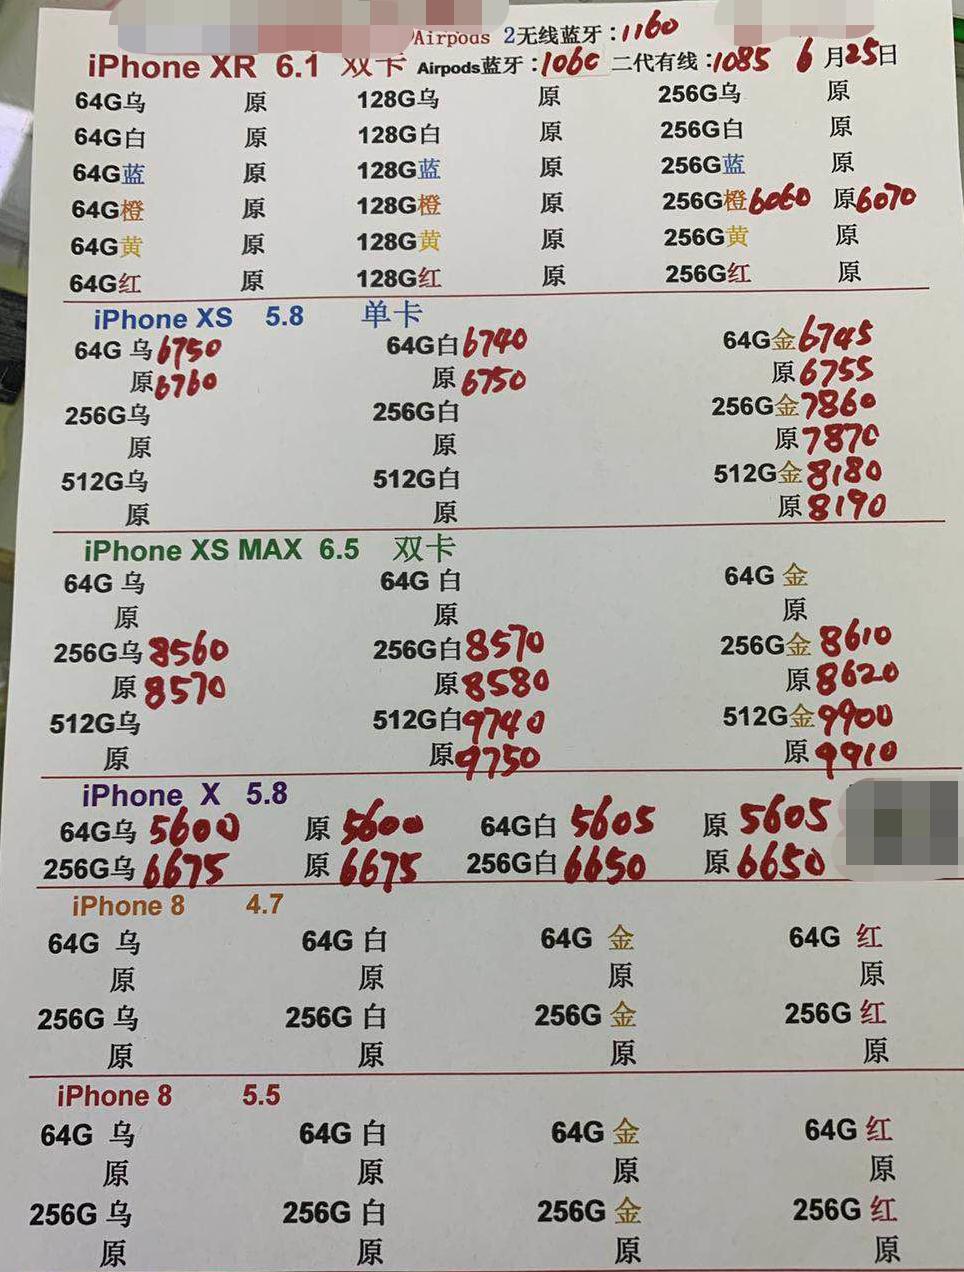 Airpods 2无线蓝牙:1160
iPhone XR 6.1 双卡 Airpods蓝牙:1060 二代有线:1085 6月25日
64G乌 原 128G乌 原 256G乌 原
64G白 原 128G白 原 256G白 原
64G蓝 原 128G蓝 原 256G蓝 原
64G橙 原 128G橙 原 256G橙6060 原6070
64G黄 原 128G黄 原 256G黄 原
64G红 原 128G红 原 256G红 原
iPhone XS 5.8 单卡
64G 乌6750 64G白6740 64G金6745
原6760 原6750 原6755
256G乌 256G白 256G金7860
原 原 原7870
512G乌 512G白 512G金8180
原 原 原8190
iPhone XS MAX 6.5 双卡
64G 乌 64G 白 64G 金
原 原 原
256G乌8560 256G白8570 256G金8610
原8570 原8580 原8620
512G乌 512G白9740 512G金9900
原 原9750 原9910
iPhone X 5.8
64G乌5600 原5600 64G白5605 原5605
256G乌6675 原6675 256G白6650 原6650
iPhone 8 4.7
64G 乌 64G 白 64G 金 64G 红
原 原 原 原
256G 乌 256G 白 256G 金 256G 红
原 原 原 原
iPhone 8 5.5
64G 乌 64G 白 64G 金 64G 红
原 原 原 原
256G 乌 256G 白 256G 金 256G 红
原 原 原 原